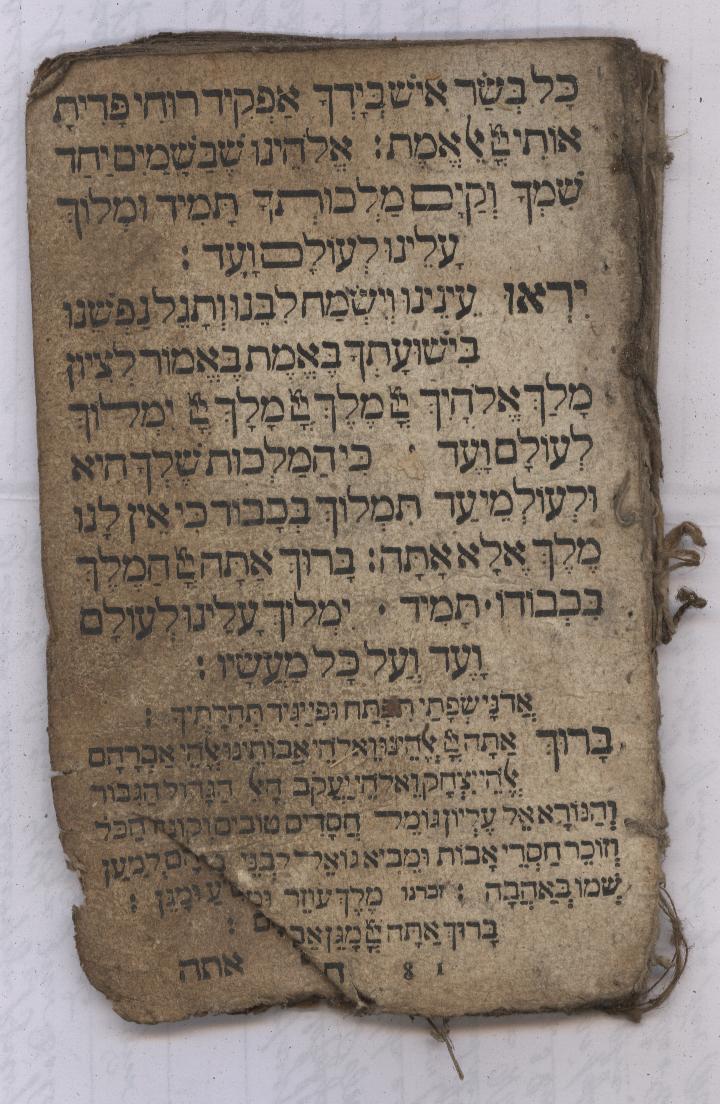 כָּל בְּשַׂר אִישׁ בְּיָדְךָ אַפְקִיד רוּחִי פָּדִיתָ
אוֹתִי יְיָ אֵל אֱמֶת׃ אֱלֹהֵינוּ שֶׁבַּשָּׁמַיִם יַחֵד
שִׁמְךָ וְקַיֵּם מַלְכוּתְךָ תָּמִיד וּמְלוֹךְ
עָלֵינוּ לְעוֹלָם וָעֶד׃
יִרְאוּ עֵינֵינוּ וְיִשְׂמַח לִבֵּנוּ וְתָגֵל נַפְשֵׁנוּ
בִּישׁוּעָתְךָ בֶּאֱמֶת בֶּאֱמוֹר לְצִיּוֹן
מָלַךְ אֱלֹהָיִךְ יְיָ מֶלֶךְ יְיָ מָלָךְ יְיָ יִמְלוֹךְ
לְעוֹלָם וָעֶד · כִּי הַמַּלְכוּת שֶׁלְּךָ הִיא
וּלְעוֹלְמֵי עַד תִּמְלוֹךְ בְּכָבוֹד כִּי אֵין לָנוּ
מֶלֶךְ אֶלָּא אָתָּה׃ בָּרוּךְ אַתָּה יְיָ הַמֶּלֶךְ
בִּכְבוֹדוֹ · תָּמִיד · יִמְלוֹךְ עָלֵינוּ לְעוֹלָם
וָעֶד וְעַל כָּל מַעֲשָׂיו׃
אֲדֹנָי שְׂפָתַי תִּפְתָּח וּפִי יַגִּיד תְּהִלָּתֶךָ׃
בָּרוּךְ אַתָּה יְיָ אֱלֹהֵינוּ וֵאלֹהֵי אֲבוֹתֵינוּ אֱלֹהֵי אַבְרָהָם
אֱלֹהֵי יִצְחָק וֵאלֹהֵי יַעֲקֹב הָאֵל הַגָּדוֹל הַגִּבּוֹר
וְהַנּוֹרָא אֵל עֶלְיוֹן גּוֹמֵל חֲסָדִים טוֹבִים וְקוֹנֵה הַכֹּל
וְזוֹכֵר חַסְדֵי אָבוֹת וּמֵבִיא גוֹאֵל לִבְנֵי לְמַעַן
שְׁמוֹ בְּאַהֲבָה׃ זכרנו מֶלֶךְ עוֹזֵר וּמָגֵן׃
בָּרוּךְ אַתָּה יְיָ מָגֵן
אתה 8 1